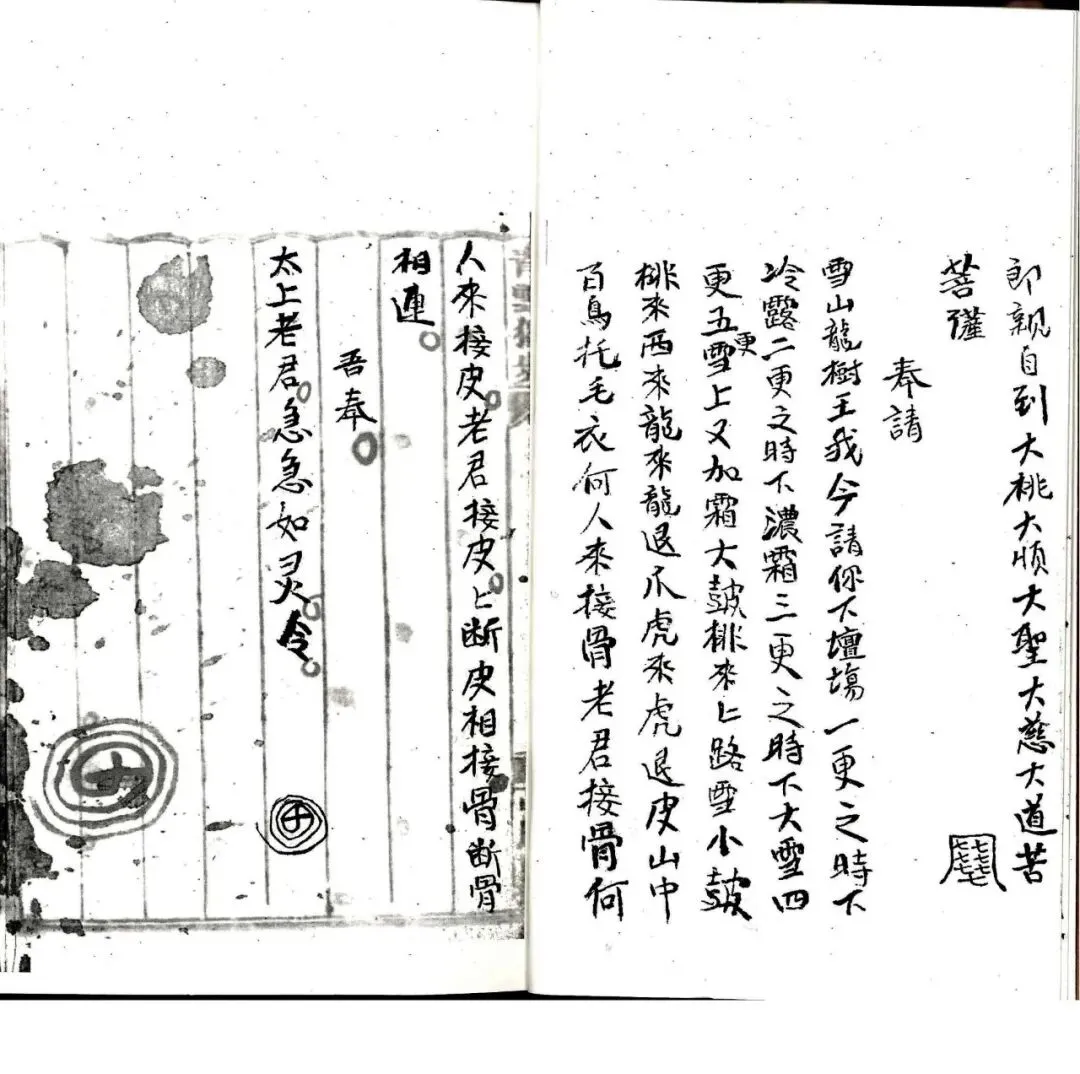 郎親自到大桃大順大聖大慈大道苦
菩薩
奉請
雪山龍樹王我今請你下壇塲一更之時下
冷露二更之時下濃霜三更之時下大雪四
更五更雪上又加霜大皷排來上路雪小皷
排來西來龍來龍退爪虎來虎退皮山中
百鳥托毛衣何人來接骨老君接骨何
人來接皮老君接皮〻断皮相接骨断骨
相連
吾奉
太上老君急急如灵令